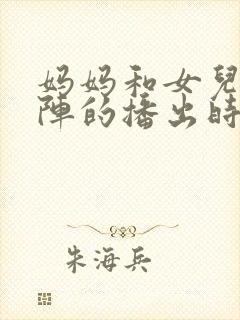 妈妈和女兒
陣的播出時
朱海兵